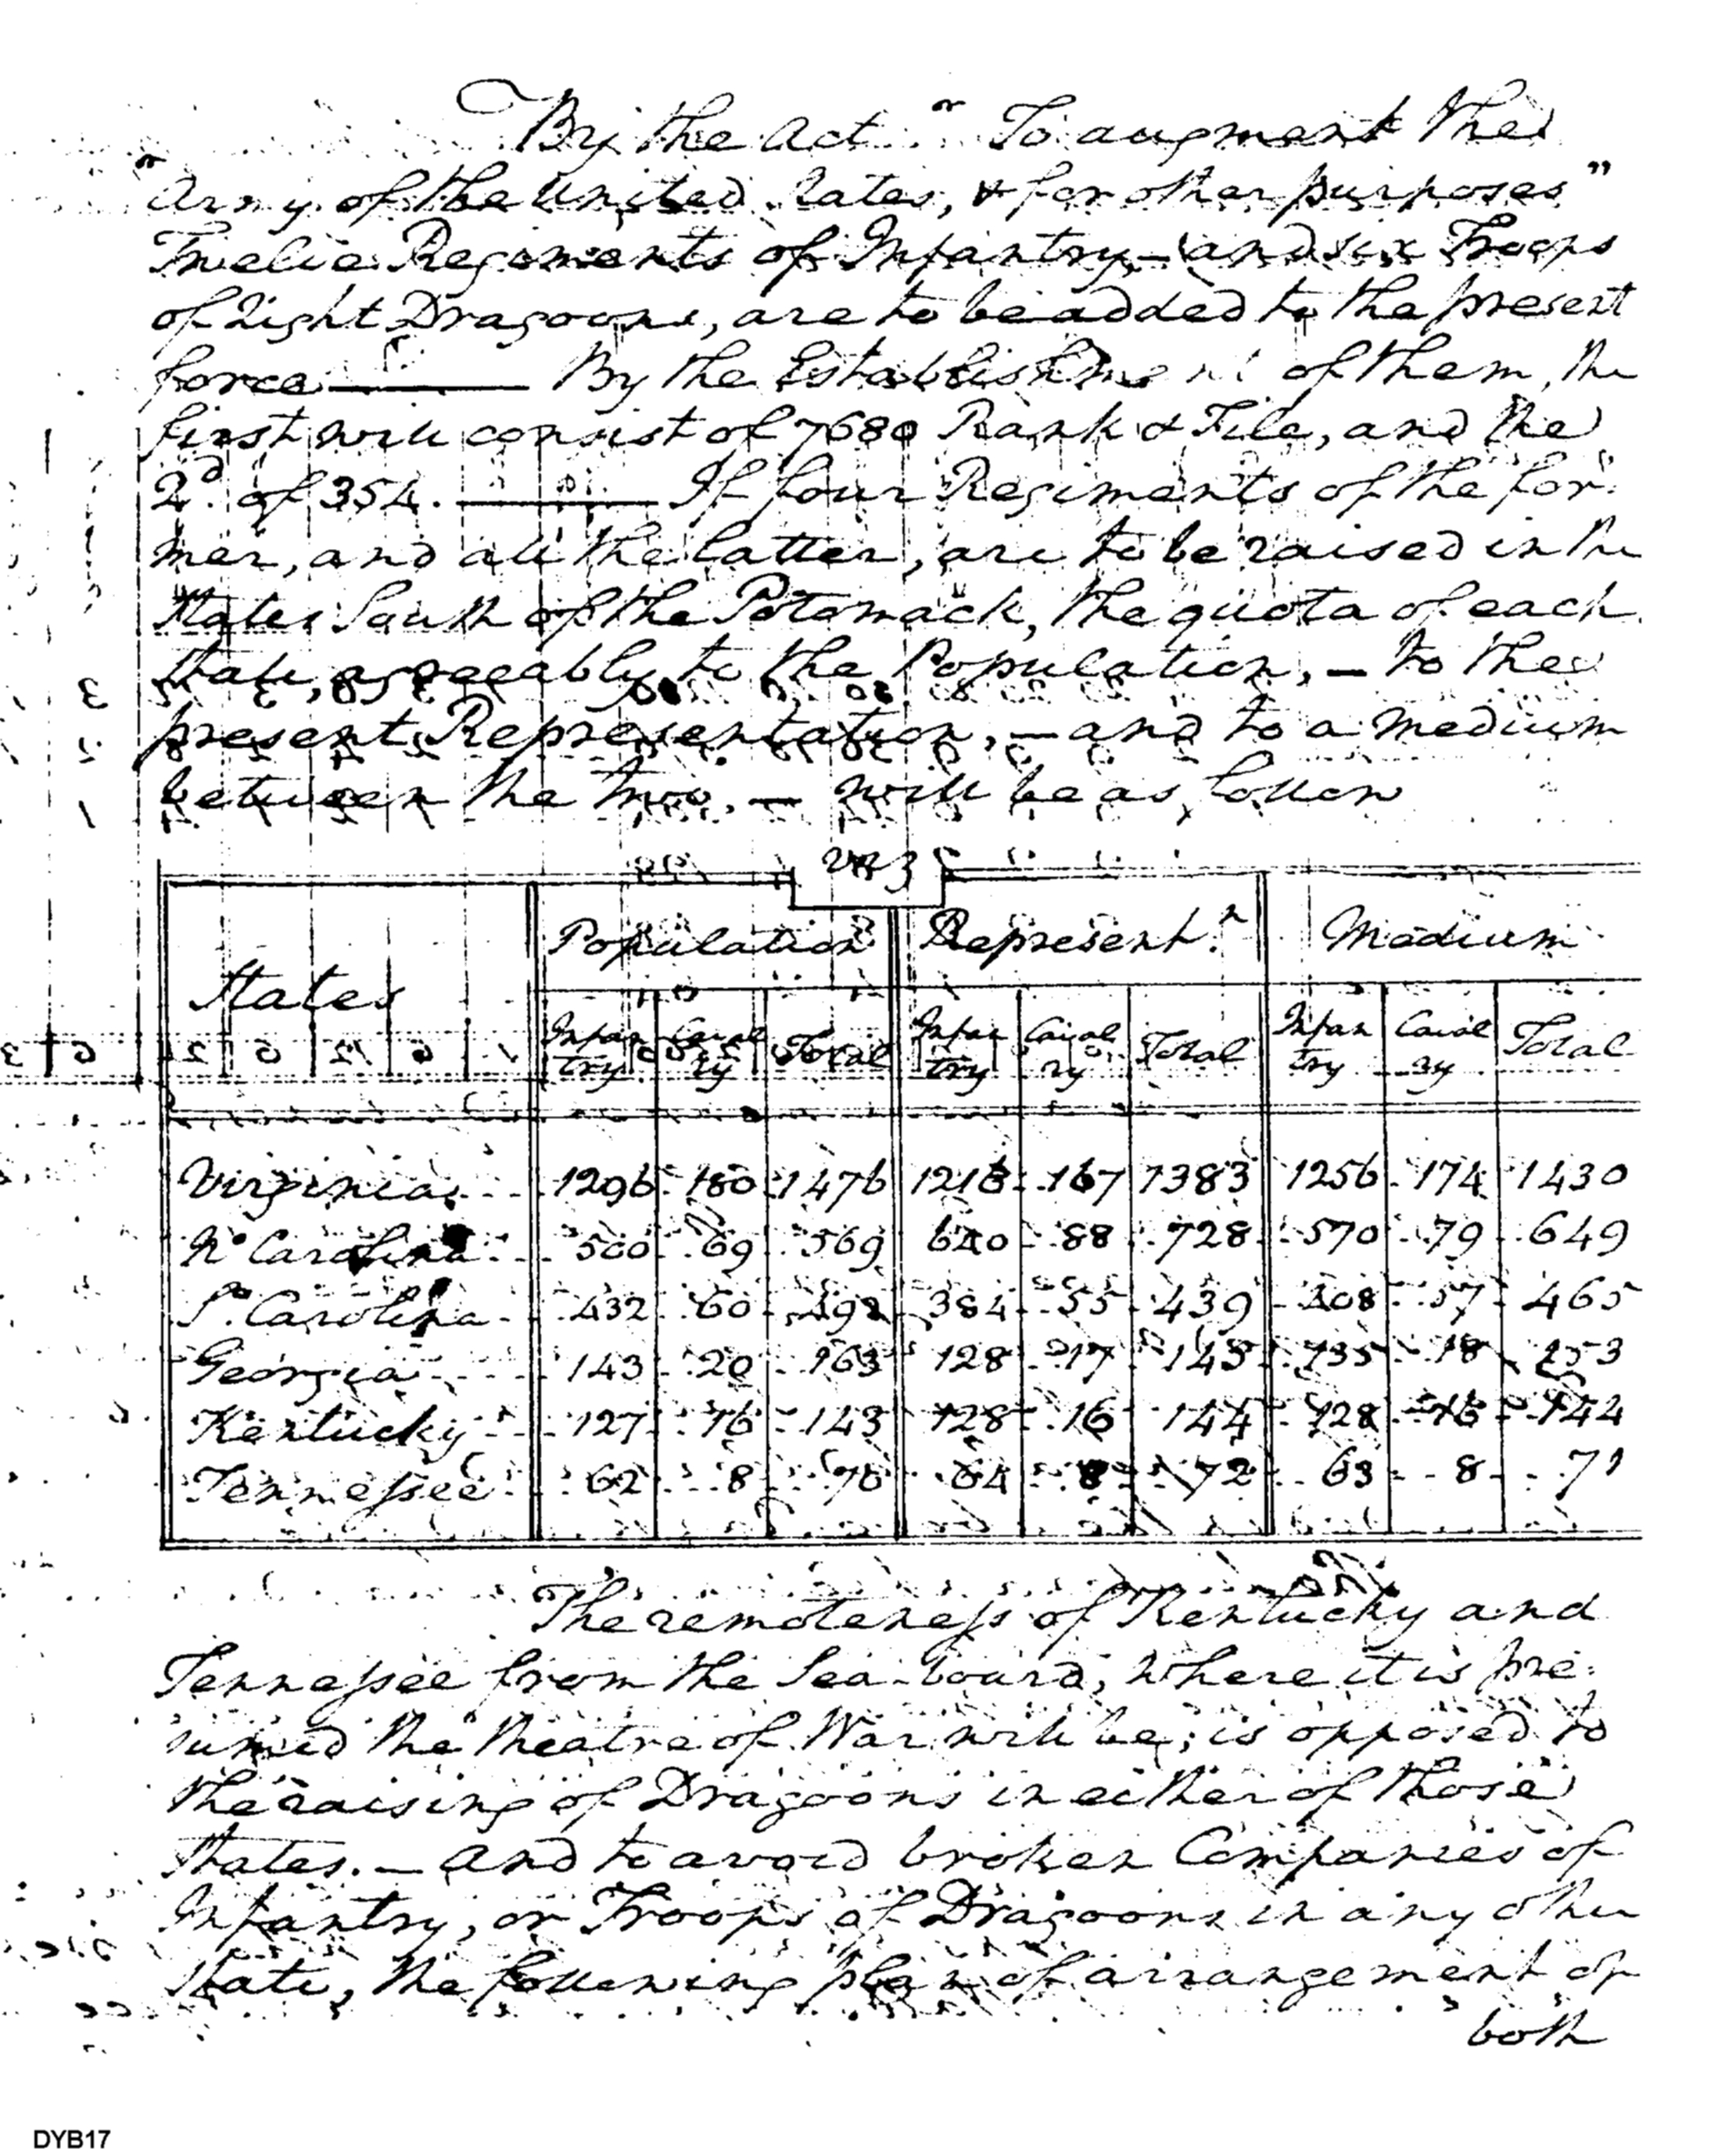 By the Act "To augment the
"Army of the United States, & for other purposes"
Twelve Regiments of Infantry,— and six Troops
of Light Dragoons, are to be added to the present
force —— By the Establishment of them, the
first will consist of 7680 Rank & File, and the
2d. of 354. —— If four Regiments of the for:
mer, and all the latter, are to be raised in the
States South of the Potomack, the quota of each
State, agreeably to the Population, — to the
present Representation, — and to a medium
between the two, — will be as follow
States Population Represent.n Medium
Infantry Cavalry Total Infantry Cavalry Total Infantry Cavalry Total
Virginia 1296 180 1476 1216 167 1383 1256 174 1430
No Carolina 500 69 569 640 88 728 570 79 649
So. Carolina 432 60 492 384 55 439 408 57 465
Georgia 143 20 163 128 17 145 135 18 153
Kentucky 127 16 143 128 16 144 128 16 144
Tennessee 62 8 70 64 8 72 63 8 71
The remoteness of Kentucky and
Tennessee from the Sea-board, where it is pre:
sumed the theatre of War will be; is opposed to
the raising of Dragoons in either of those
States. — And to avoid broken Companies of
Infantry, or Troops of Dragoons in any other
State, the following plan of arrangement of
both
DYB17